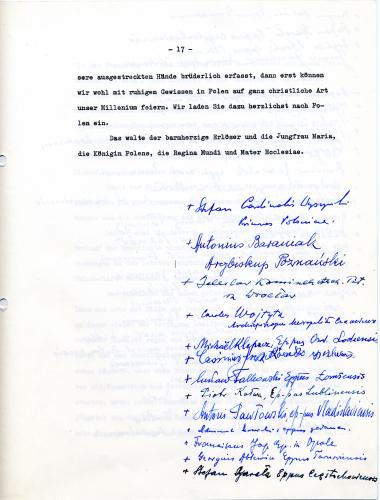 - 17 -
sere ausgestreckten Hände brüderlich erfasst, dann erst können
wir wohl mit ruhigem Gewissen in Polen auf ganz christliche Art
unser Millenium feiern. Wir laden Sie dazu herzlichst nach Po-
len ein.
Das walte der barmherzige Erlöser und die Jungfrau Maria,
die Königin Polens, die Regina Mundi und Mater Ecclesiae.
+ Stefan Cardinalis Wyszyński
Primas Poloniae.
+ Antonius Baraniak
Arcybiskup Poznański
+ Boleslav Kominek
w Wrocław
+ Carolus Wojtyła
Archiepiscopus Metropolita Cracoviensis
+ Michael Klepacz, Eppus Ord. Lodzensis
+ Eppus Łomżensis
+ Piotr Kałwa, Ep-pus Lublinensis
+ Antoni Pawłowski ep-pus Vladislaviensis
+
+ Franciscus Jop Ep. in Opole
+ Georgius Ablewicz Eppus Tarnoviensis
+ Stefan Bareła Eppus Częstochoviensis